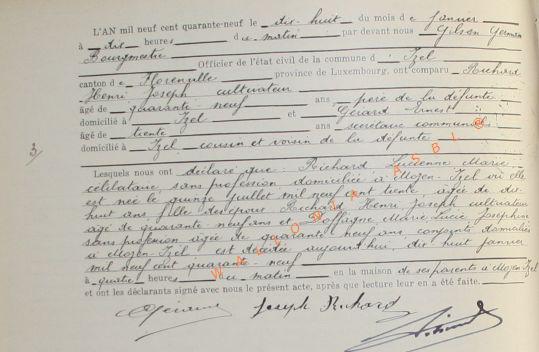 L'AN mil neuf cent quarante-neuf le dix-huit du mois de janvier
à dix heures du matin par devant nous Gilson Germain
Bourgmestre Officier de l'état civil de la commune d'Izel
canton de Florenville province de Luxembourg, ont comparu Richard
Henri Joseph cultivateur
âgé de quarante neuf ans père de la défunte
domicilié à Izel et Gérard Ernest
âgé de trente ans secrétaire communal
domicilié à Izel cousin et voisin de la défunte
3/
Lesquels nous ont déclaré que Richard Lucienne Marie
célibataire, sans profession domiciliée à Moyen-Izel où elle
est née le quinze juillet mil neuf cent trente, âgée de dix
huit ans, fille des époux Richard Henri Joseph cultivateur
âgé de quarante neuf ans et Goffagne Marie Lucie Joséphine
sans profession âgée de quarante neuf ans, conjoints domiciliés
à Moyen-Izel est décédée aujourd'hui, dix huit janvier
mil neuf cent quarante-neuf
à quatre heures du matin en la maison de ses parents à Moyen-Izel
et ont les déclarants signé avec nous le présent acte, après que lecture leur en a été faite.
Joseph Richard
WALLONIA ASBL @